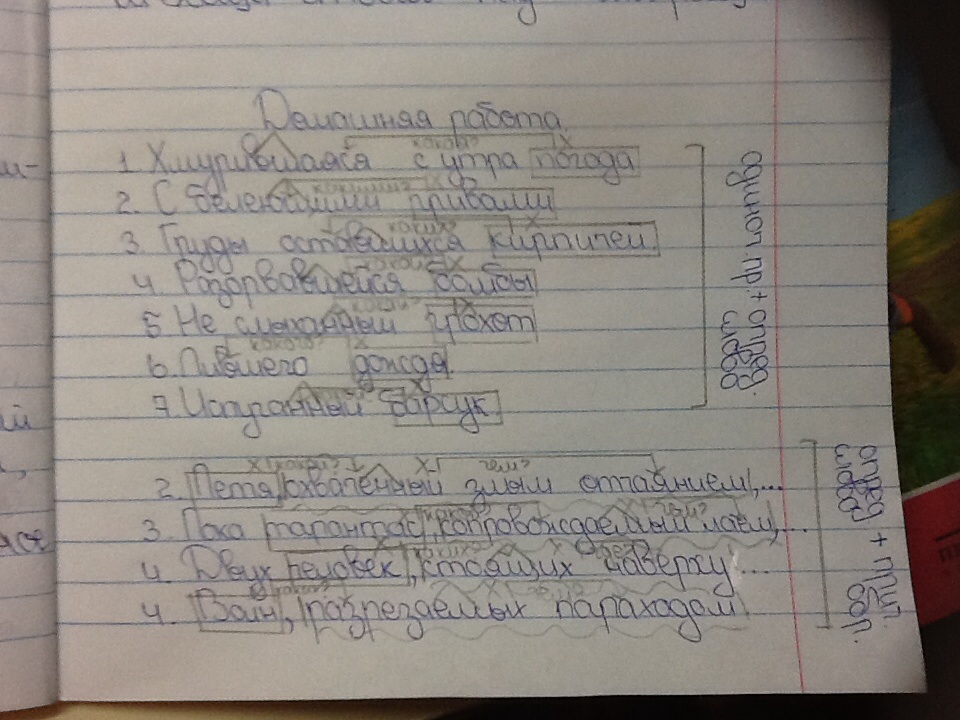 Домашняя работа
какая? х
1. Хмурившаяся с утра погода
какими? х
2. С белеющими гривами
каких? х
3. Груды оставшихся кирпичей.
какой? х
4. Разорвавшейся бомбы
какой? х
5 Не слыханный грохот
какого? х
6. Лившего дождя
х
7. Испуганный барсук
одиноч пр. + опред. слово
х какой? х чем?
2. Петя, охваченный злым отчаянием, ...
какой? х чем?
3. Пока тарантас, сопровождаемый лаем, ...
каких? х где?
4. Двух человек, стоящих наверху ...
каких?
4. Волн, разрезаемых параходом
опред слово + прич. об.